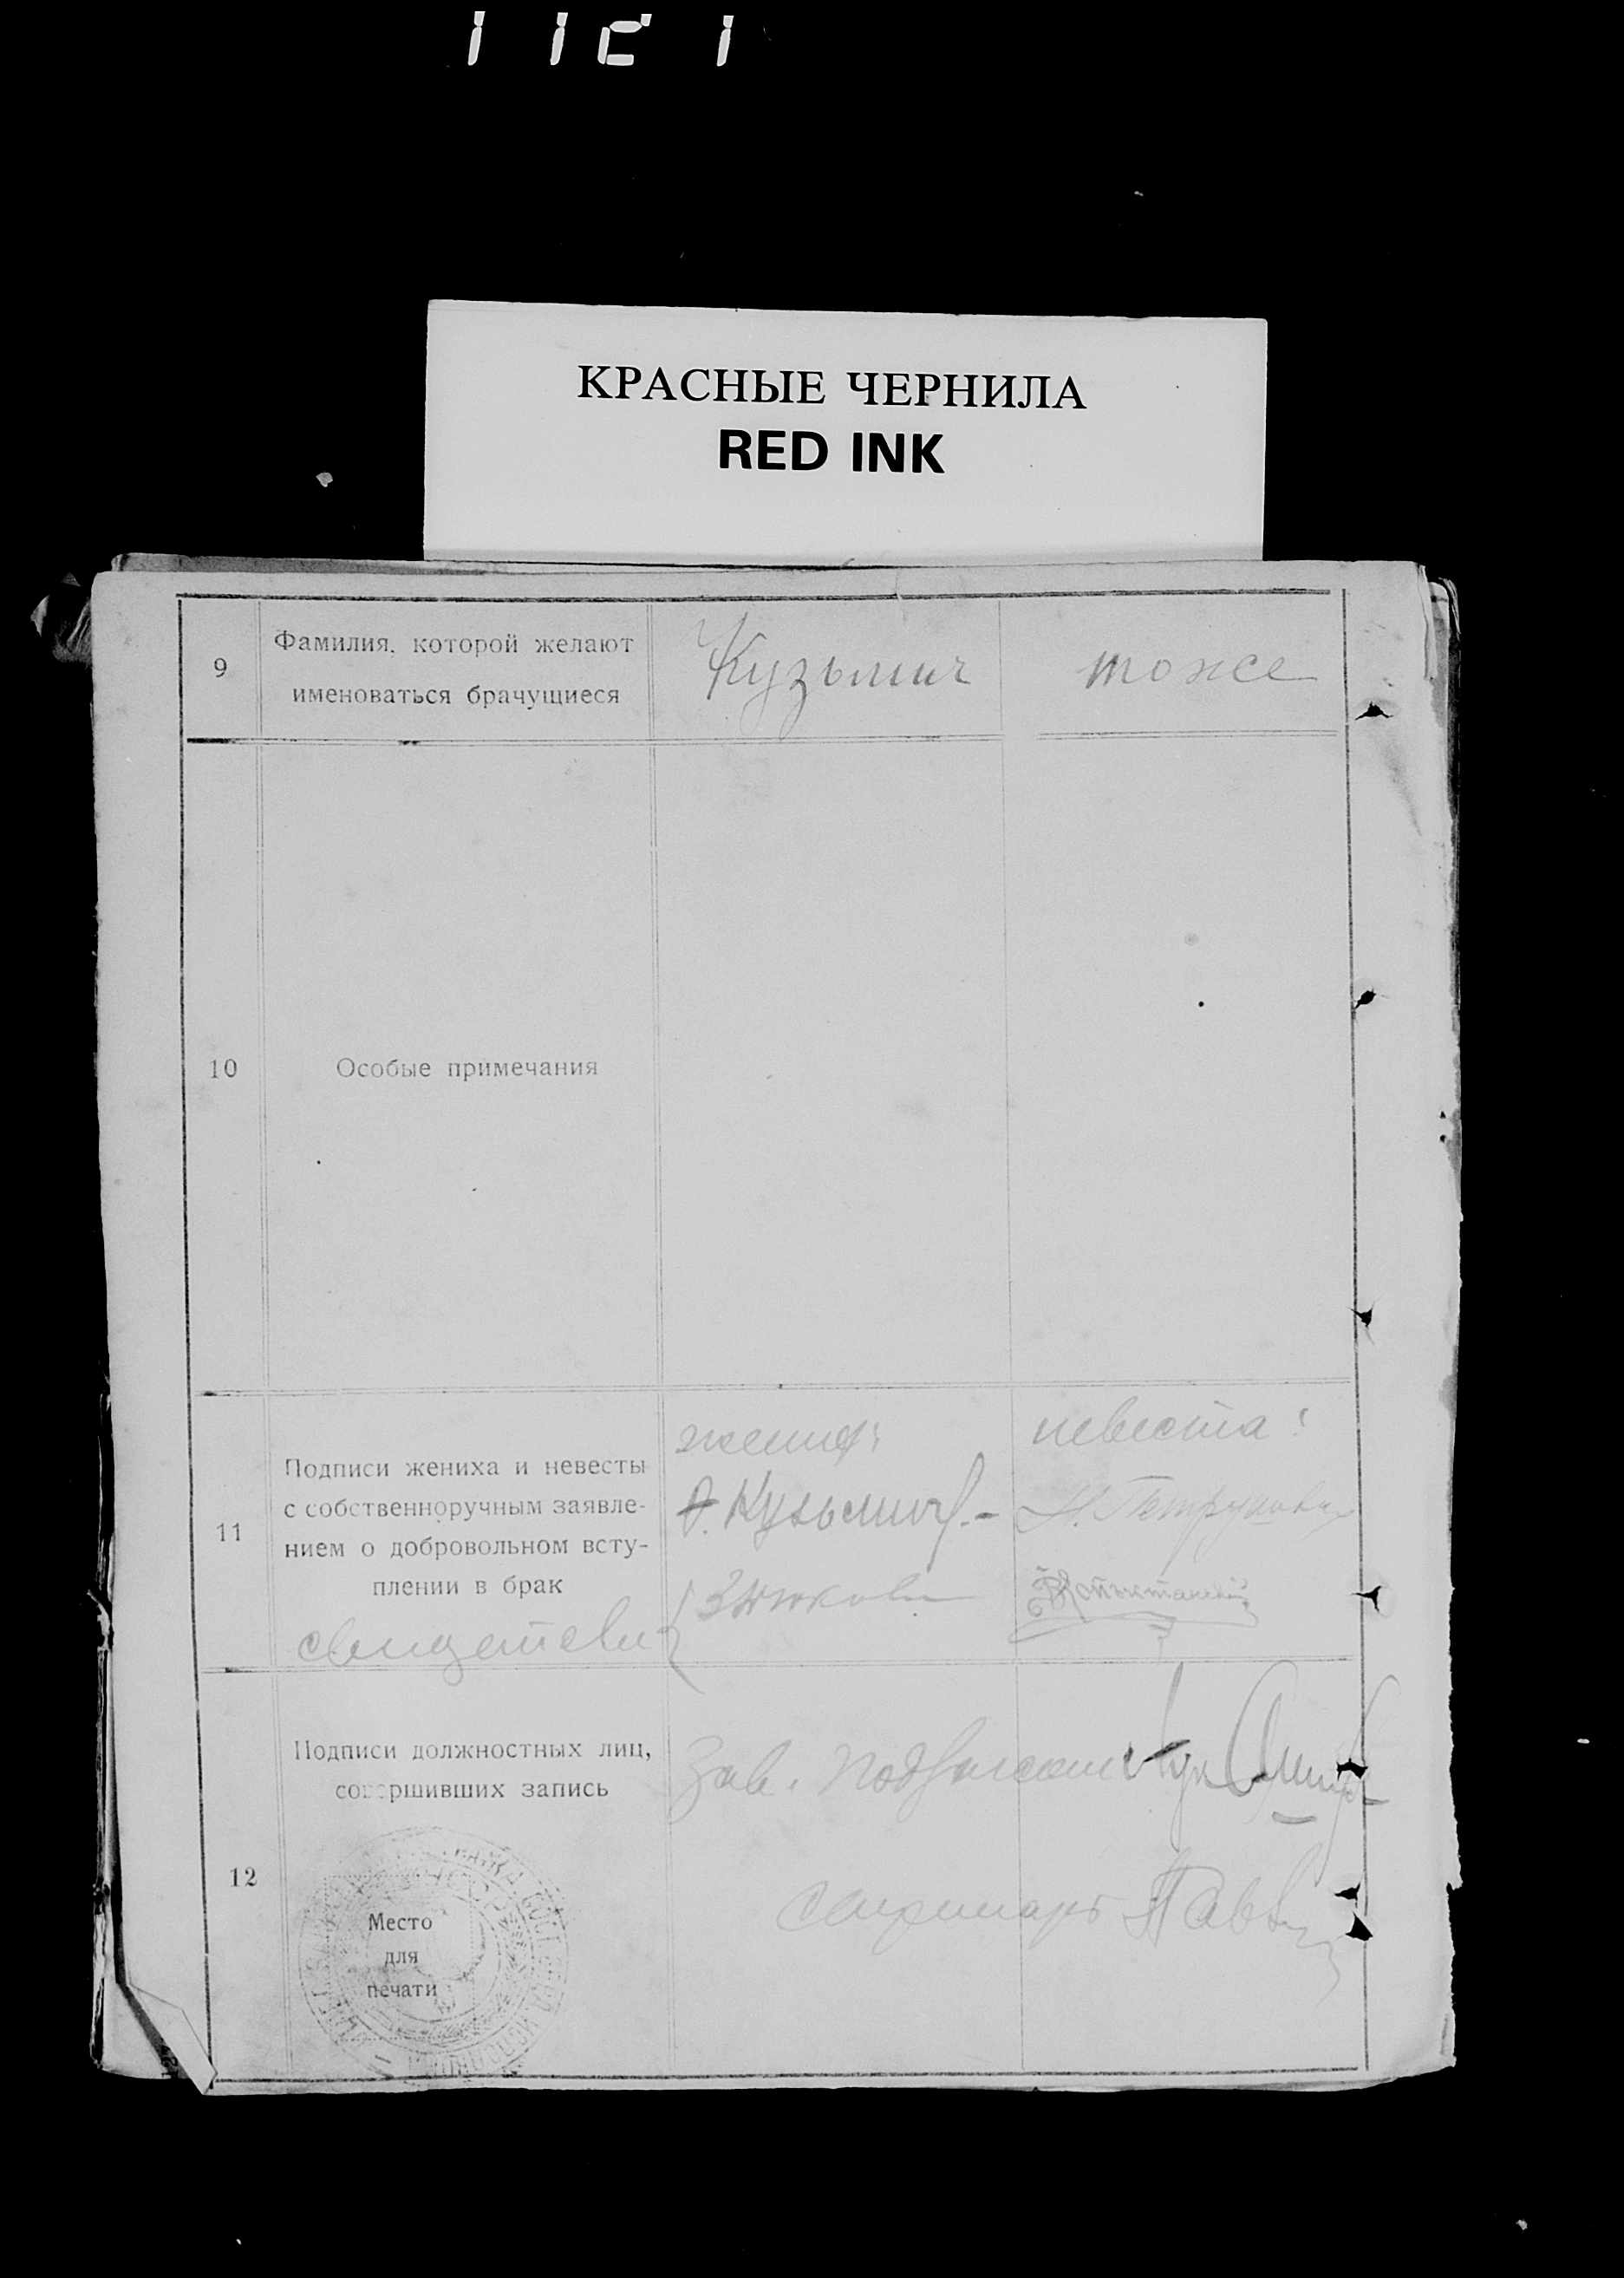 КРАСНЫЕ ЧЕРНИЛА
RED INK
9
Фамилия, которой желают
именоваться брачущиеся
Кузьмич
тоже
10
Особые примечания
11
Подписи жениха и невесты
с собственноручным заявле-
нием о добровольном всту-
плении в брак
свидетели
жених:
А. Кузьмич
невеста:
Н. Петрукович
12
Подписи должностных лиц,
совершивших запись
Место
для
печати
Зав.
секретарь